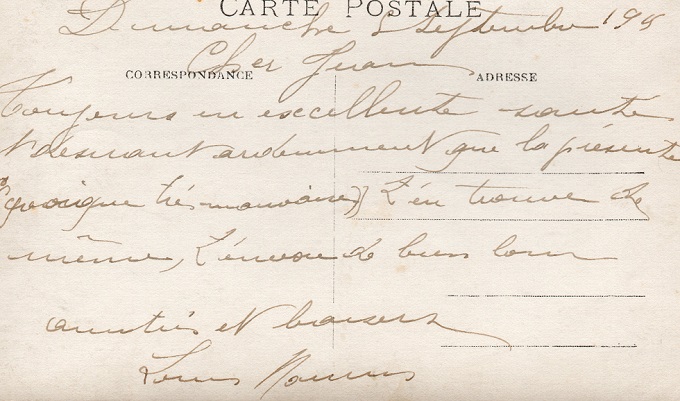 CARTE POSTALE
Dimanche 8 Septembre 19
Cher Juan
CORRESPONDANCE ADRESSE
Toujours en excellente santé
désirant ardemment que la présente
(quoique très mauvaise) t'en trouve de
même, t'envoie de biens bons
amitiés et baisers
Louis